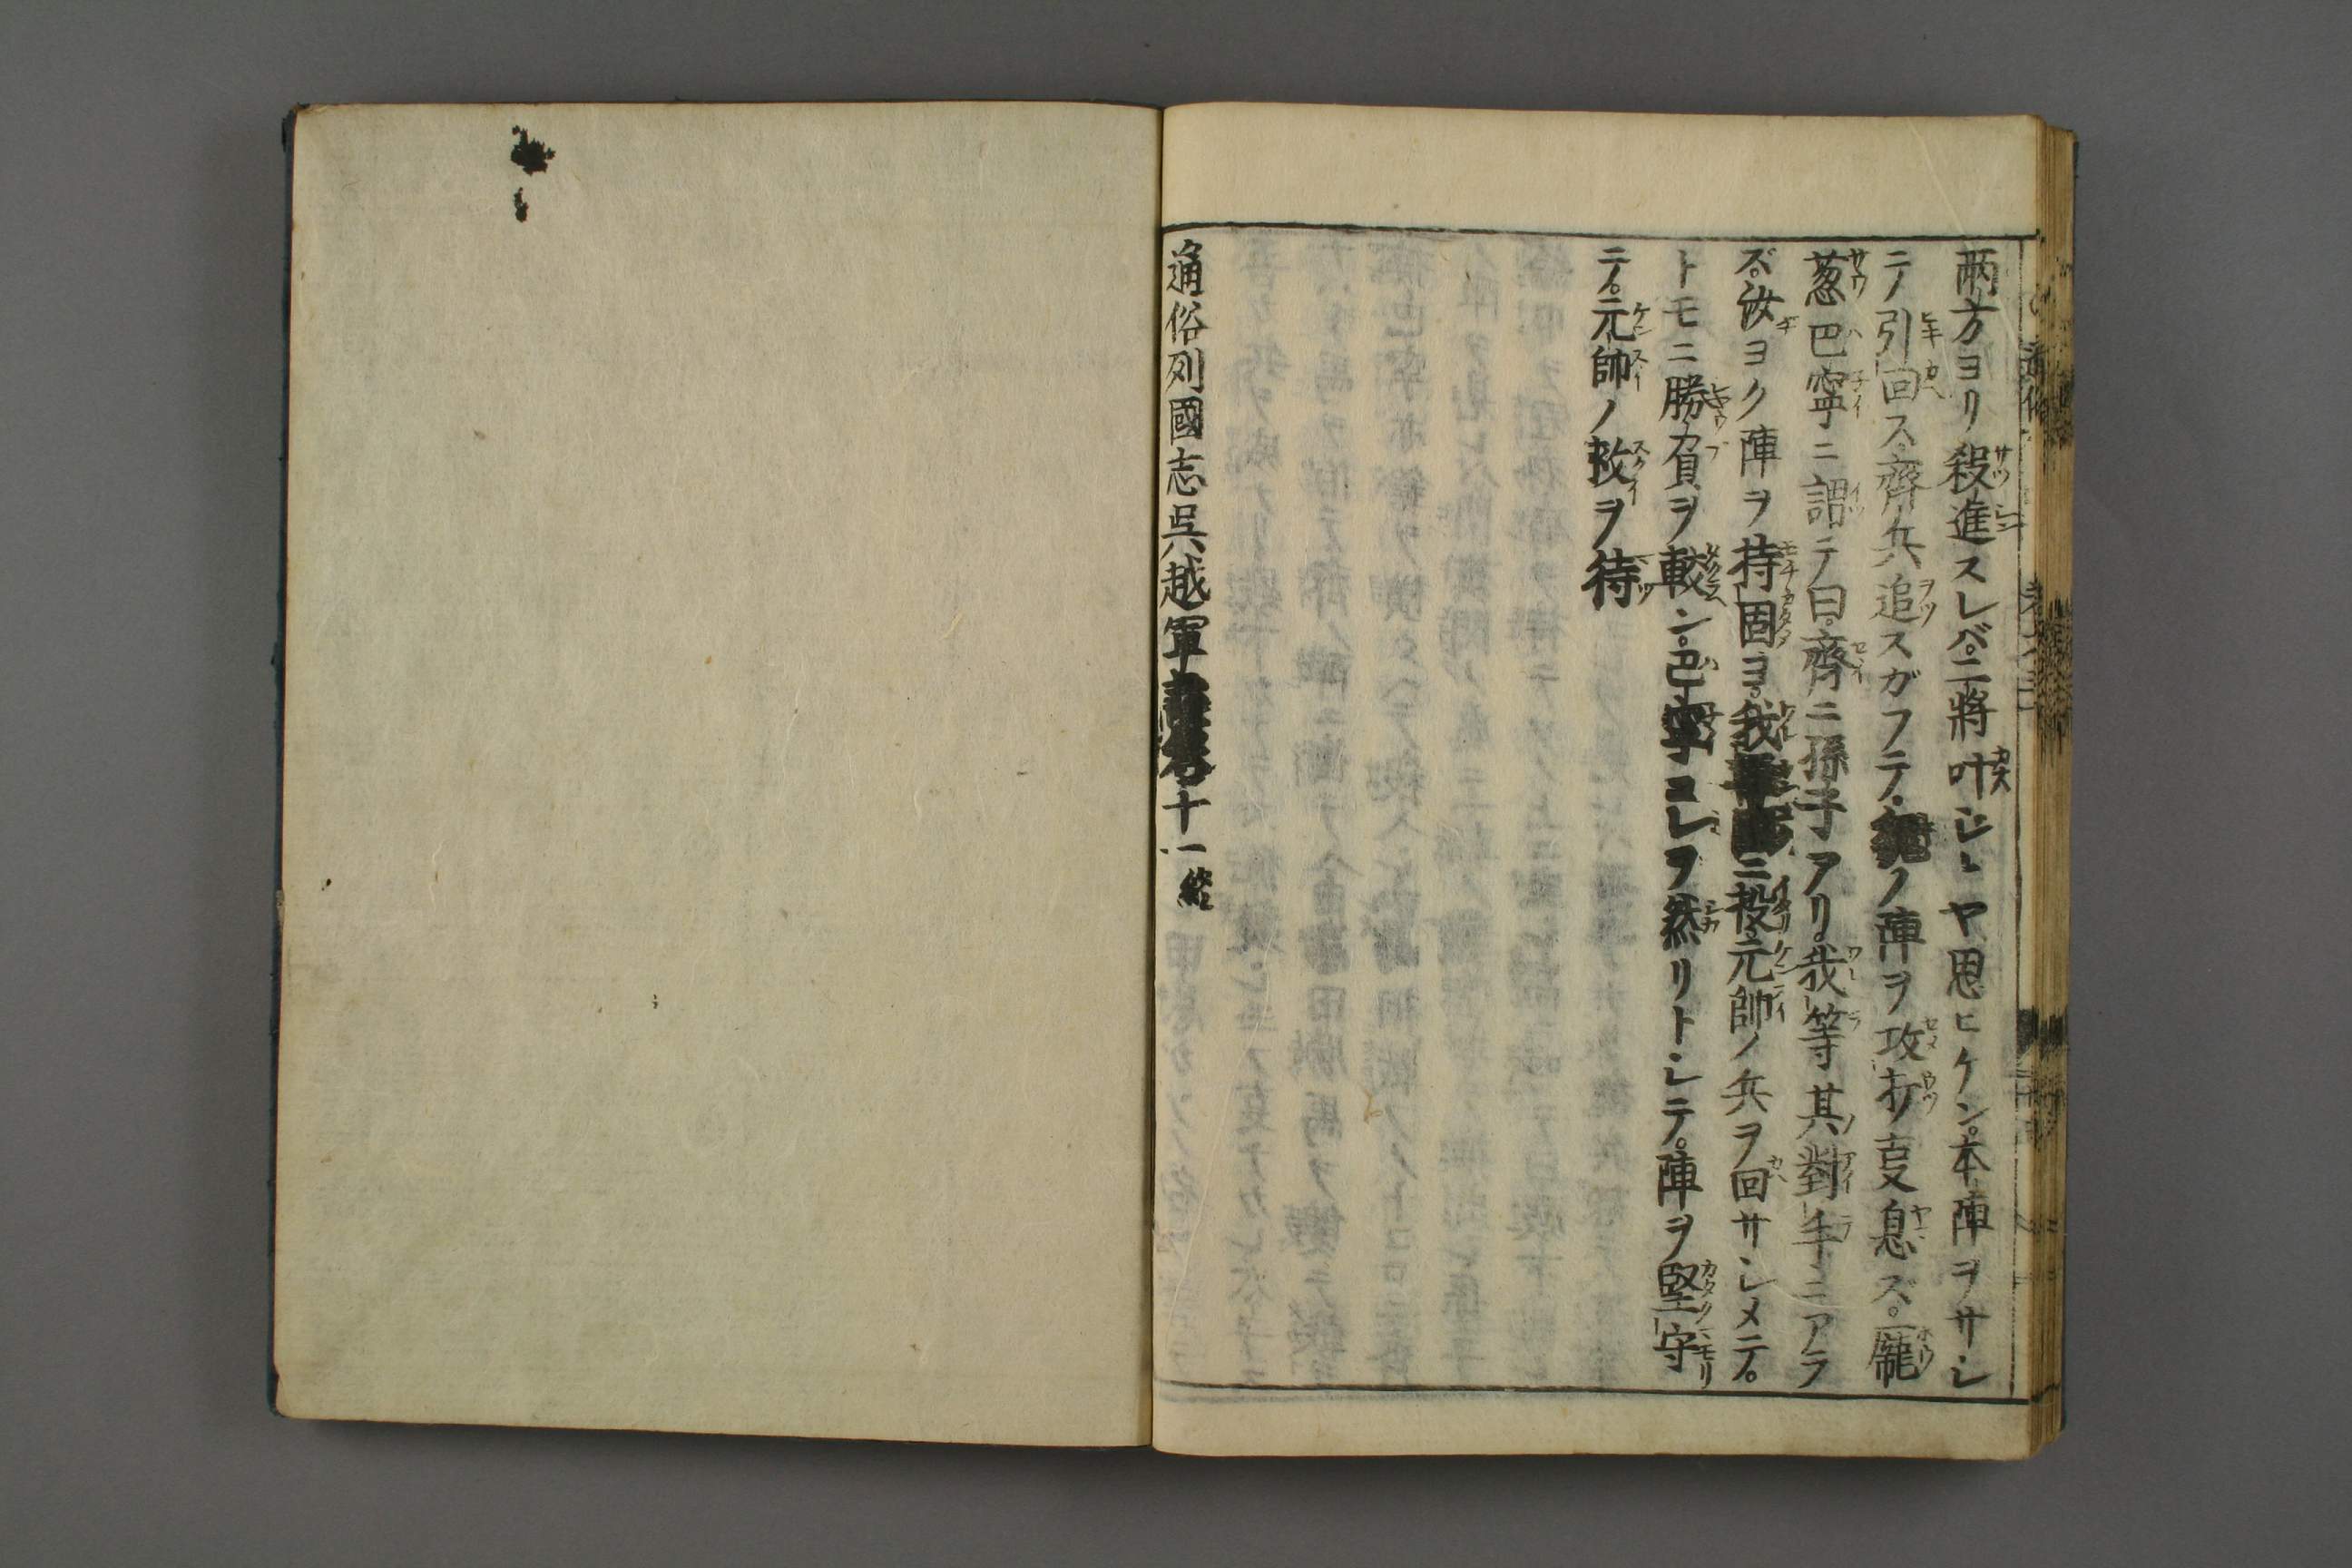 両方ヨリ殺進スレバ。二將叶ハシトヤ思ヒケン。本陣ヲサシ
テ引回ス。齊兵追スガフテ。ノ陣ヲ攻打ヿ更ニ息ズ。龐
葱巴寧ニ謂テ曰。齊ニ孫子アリ。我等其對手ニアラ
ズ。汝ヨク陣ヲ持固ヨ。我ニ投元帥ノ兵ヲ回サシメテ。
トモニ勝負ヲ較ン。巴寧コレヲ然リトシテ。陣ヲ堅守
テ。元帥ノ救ヲ待
通俗列國志呉越軍十一終